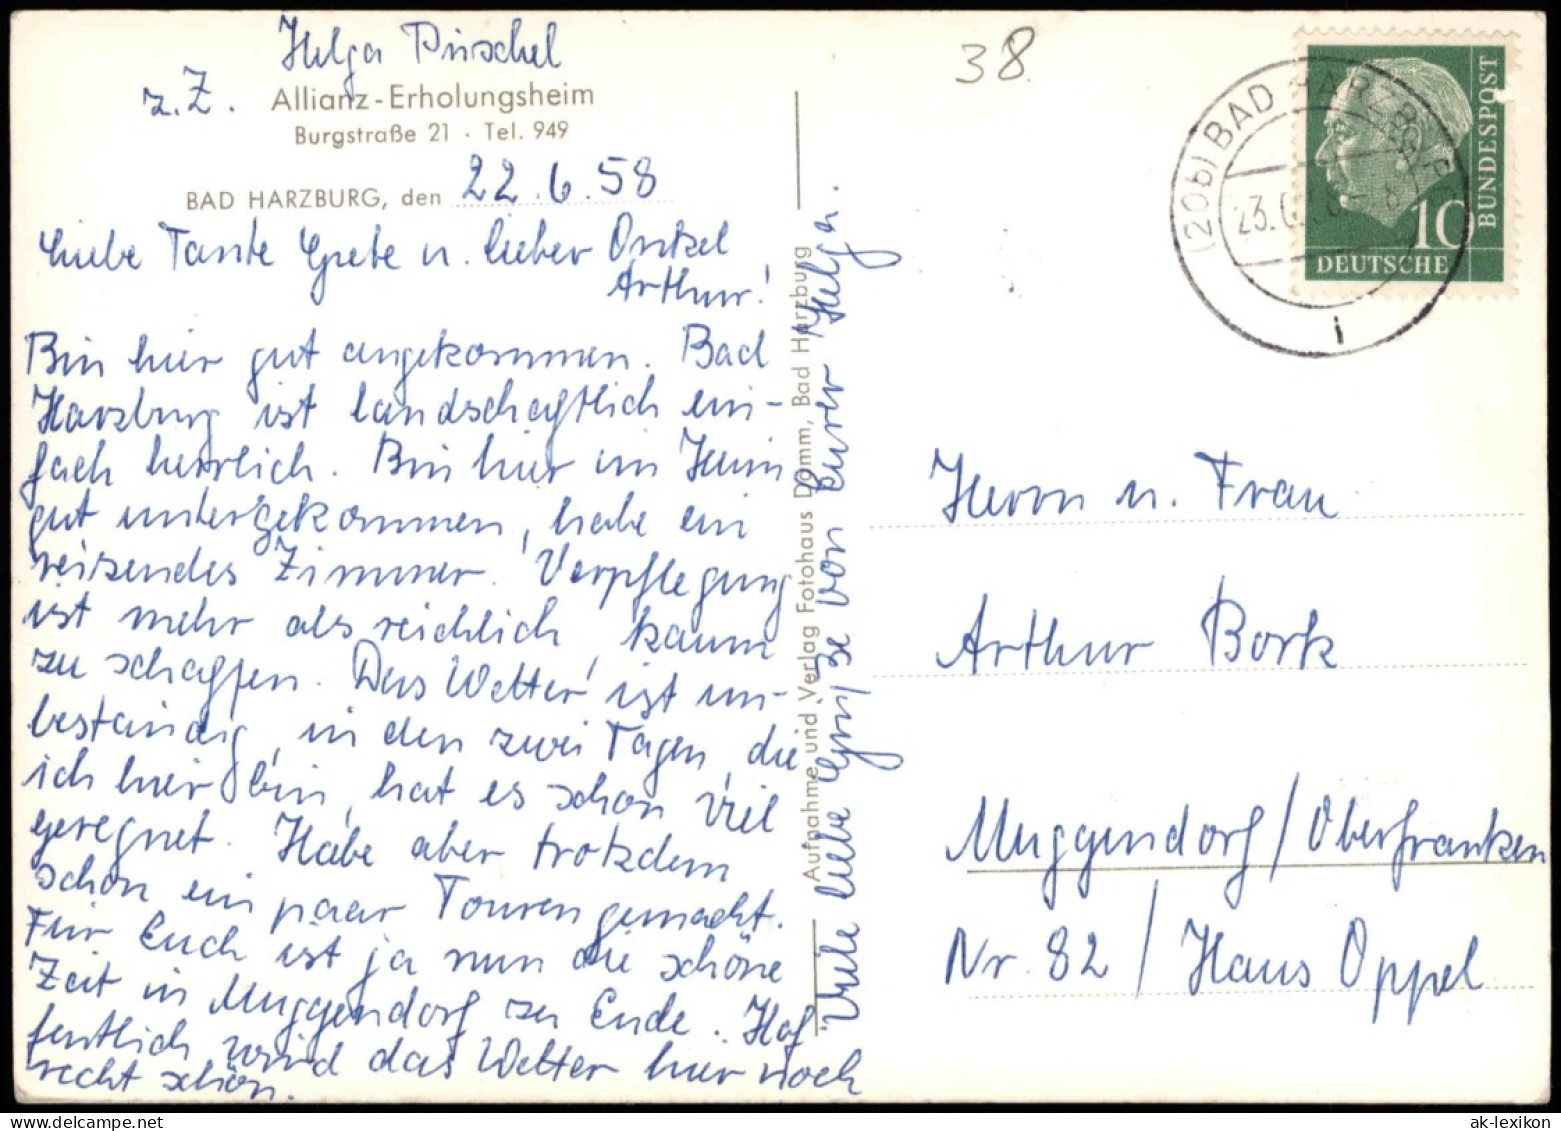 Helga Püschel
z. Z. Allianz-Erholungsheim
Burgstraße 21 · Tel. 949
BAD HARZBURG, den 22.6.58
Liebe Tante Grete u. lieber Onkel
Arthur!
Bin hier gut angekommen. Bad
Harzburg ist landschaftlich ein-
fach herrlich. Bin hier im Heim
gut untergekommen, habe ein
reizendes Zimmer. Verpflegung
ist mehr als reichlich, kaum
zu schaffen. Das Wetter ist un-
beständig, in den zwei Tagen, die
ich hier bin, hat es schon viel
geregnet. Habe aber trotzdem
schon ein paar Touren gemacht.
Für Euch ist ja nun die schöne
Zeit in Muggendorf zu Ende. Hof-
fentlich wird das Wetter hier noch
recht schön.
Viele liebe Grüße von Eurer Helga.
Aufnahme und Verlag Fotohaus Damm, Bad Harzburg
38
(20b) BAD HARZBURG
23.6.58
i
10
BUNDESPOST
DEUTSCHE
Herrn u. Frau
Arthur Bork
Muggendorf/Oberfranken
Nr. 82 / Haus Oppel
ak-lexikon.com